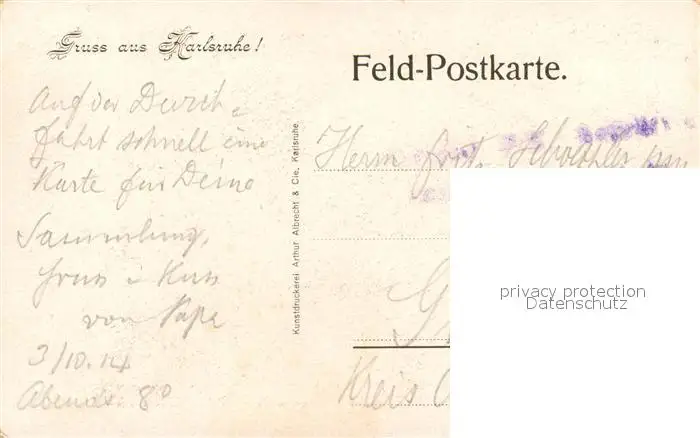 Gruss aus Karlsruhe!
Auf der Durch-
fahrt schnell eine
Karte für Deine
Sammlung.
Gruss u Kuss
von Papa
3/10.14
Abends 8°
Kunstdruckerei Arthur Albrecht & Cie, Karlsruhe.
Feld-Postkarte.
Herrn Fritz
Kreis
privacy protection
Datenschutz